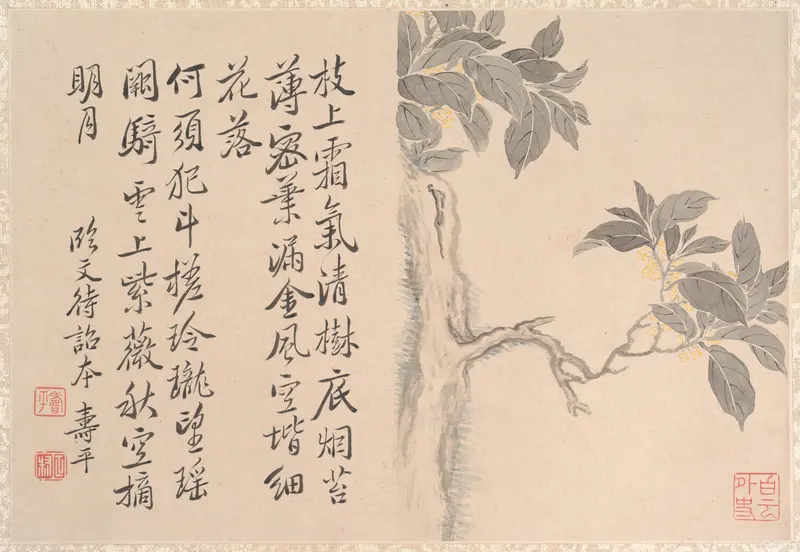 枝上霜氣清樹底烟苔
薄密葉漏金風空堦細
花落
何須犯斗槎玲瓏望瑶
闕騎雲上紫薇秋空摘
明月
臨文待詔本 壽平
壽平
白云外史